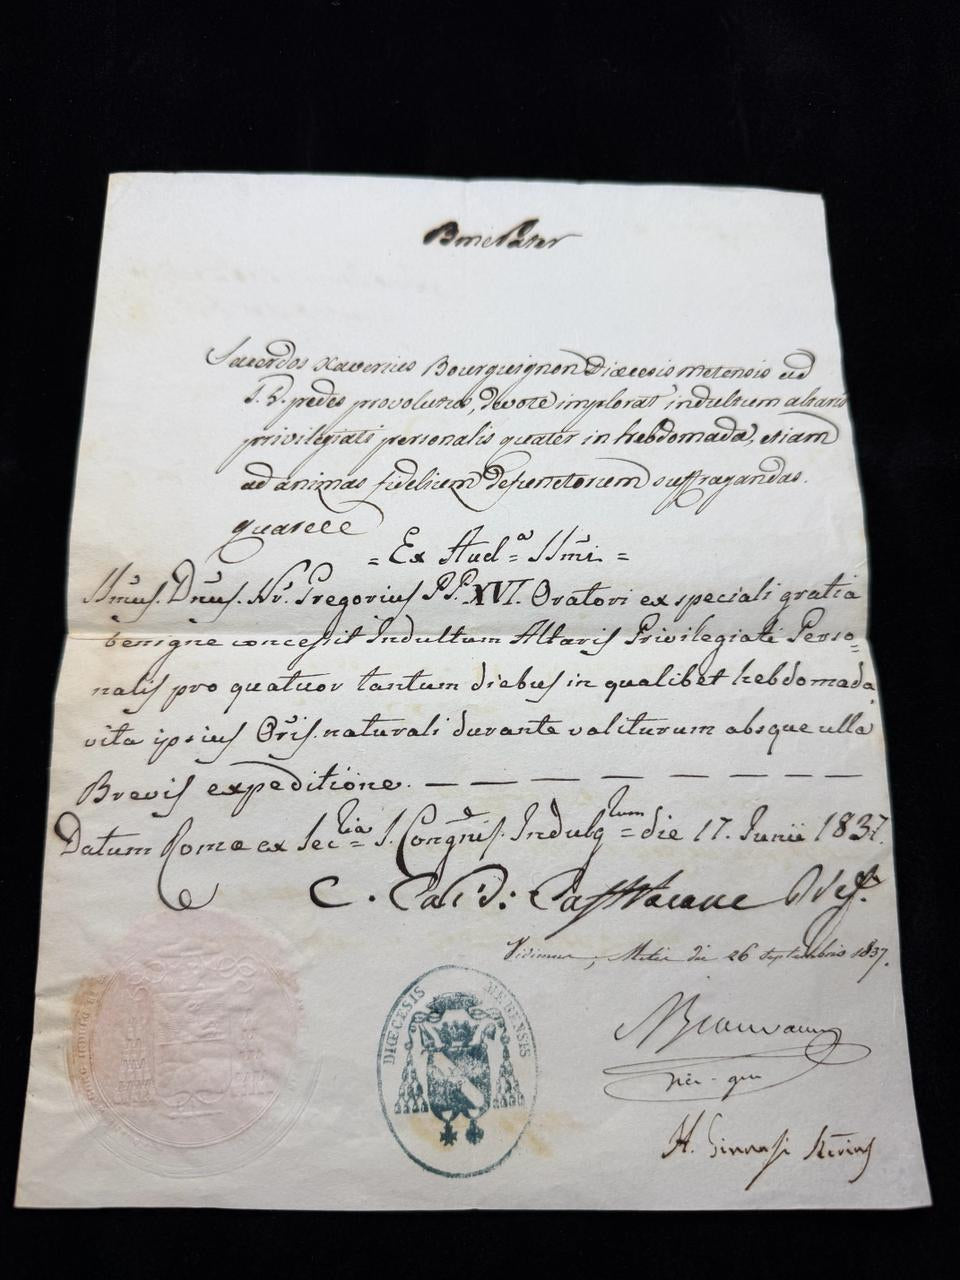 Bme Pater
Sacerdos Xaverius Bourguignon Diœcesis metensis ad
S. V. pedes provolutus, devote implorat indultum altaris
privilegiati personalis quater in hebdomadâ, etiam
ad animas fidelium defunctorum suffragandas.
quare &c
= Ex Aud.ª SSmi =
SSmus. Dnus. Nr. Gregorius PP. XVI. Oratori ex speciali gratia
benigne concessit Indultum Altaris Privilegiati Perso=
nalis pro quatuor tantum diebus in qualibet hebdomada
vita ipsius Oris. naturali durante valiturum absque ulla
Brevis expeditione. — — — — — — — —
Datum Romæ ex Sec.ria S. Congnis. Indulg.tum die 17. Junii 1837.
C. Card: Castracane Præf.
Vidimus, Metis die 26 septembris 1837.
vic-gen
DIŒCESIS METENSIS